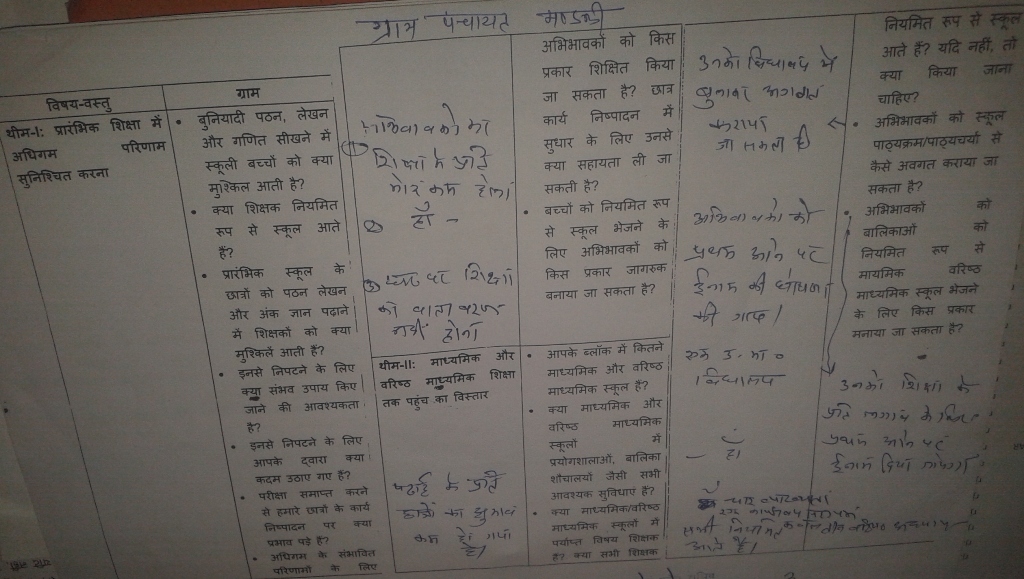 ग्राम पंचायत
विषय-वस्तु
ग्राम
थीम-I: प्रारंभिक शिक्षा में
अधिगम परिणाम
सुनिश्चित करना
• बुनियादी पठन, लेखन
और गणित सीखने में
स्कूली बच्चों को क्या
मुश्किल आती है?
• क्या शिक्षक नियमित
रूप से स्कूल आते
हैं?
• प्रारंभिक स्कूल के
छात्रों को पठन लेखन
और अंक ज्ञान पढ़ाने
में शिक्षकों को क्या
मुश्किलें आती हैं?
• इनसे निपटने के लिए
क्या संभव उपाय किए
जाने की आवश्यकता
है?
• इनसे निपटने के लिए
आपके द्वारा क्या
कदम उठाए गए हैं?
• परीक्षा समाप्त करने
से हमारे छात्रों के कार्य
निष्पादन पर क्या
प्रभाव पड़े हैं?
• अधिगम के संभावित
परिणामों के लिए
शिक्षा के प्रति
कम होना
हाँ -
पर शिक्षा
का वातावरण
नहीं होना
थीम-II: माध्यमिक और
वरिष्ठ माध्यमिक शिक्षा
तक पहुंच का विस्तार
पढाई के प्रति
छात्रों का झुकाव
कम हो गया
है।
अभिभावकों को किस
प्रकार शिक्षित किया
जा सकता है? छात्र
कार्य निष्पादन में
सुधार के लिए उनसे
क्या सहायता ली जा
सकती है?
• बच्चों को नियमित रूप
से स्कूल भेजने के
लिए अभिभावकों को
किस प्रकार जागरुक
बनाया जा सकता है?
• आपके ब्लॉक में कितने
माध्यमिक और वरिष्ठ
माध्यमिक स्कूल हैं?
• क्या माध्यमिक और
वरिष्ठ माध्यमिक
स्कूलों में
प्रयोगशालाओं, बालिका
शौचालयों जैसी सभी
आवश्यक सुविधाएं हैं?
• क्या माध्यमिक/वरिष्ठ
माध्यमिक स्कूलों में
पर्याप्त विषय शिक्षक
है? क्या सभी शिक्षक
उनको विद्यालय में
बुलाकर अवगत
कराया
जा सकता है
को
प्रथम आने पर
ईनाम की घोषणा
की जाए।
एक उ. मा०
विद्यालय
- हाँ
सभी नियमित
आते है।
नियमित रूप से स्कूल
आते हैं? यदि नहीं, तो
क्या किया जाना
चाहिए?
• अभिभावकों को स्कूल
पाठ्यक्रम/पाठ्यचर्या से
कैसे अवगत कराया जा
सकता है?
• अभिभावकों को
बालिकाओं को
नियमित रूप से
मायमिक वरिष्ठ
माध्यमिक स्कूल भेजने
के लिए किस प्रकार
मनाया जा सकता है?
उनको शिक्षा के
प्रति लगाव के लिए
प्रथम आने पर
ईनाम दिया जायेगा